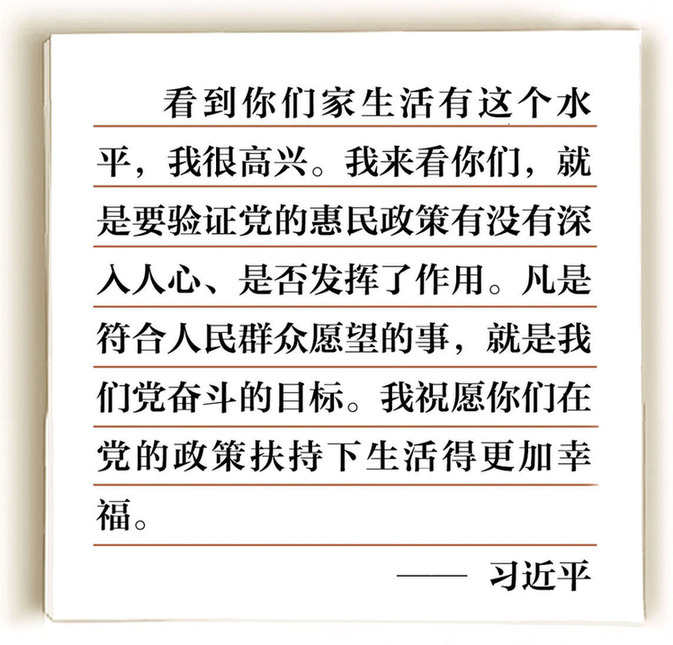 看到你们家生活有这个水
平，我很高兴。我来看你们，就
是要验证党的惠民政策有没有深
入人心、是否发挥了作用。凡是
符合人民群众愿望的事，就是我
们党奋斗的目标。我祝愿你们在
党的政策扶持下生活得更加幸
福。
—— 习近平